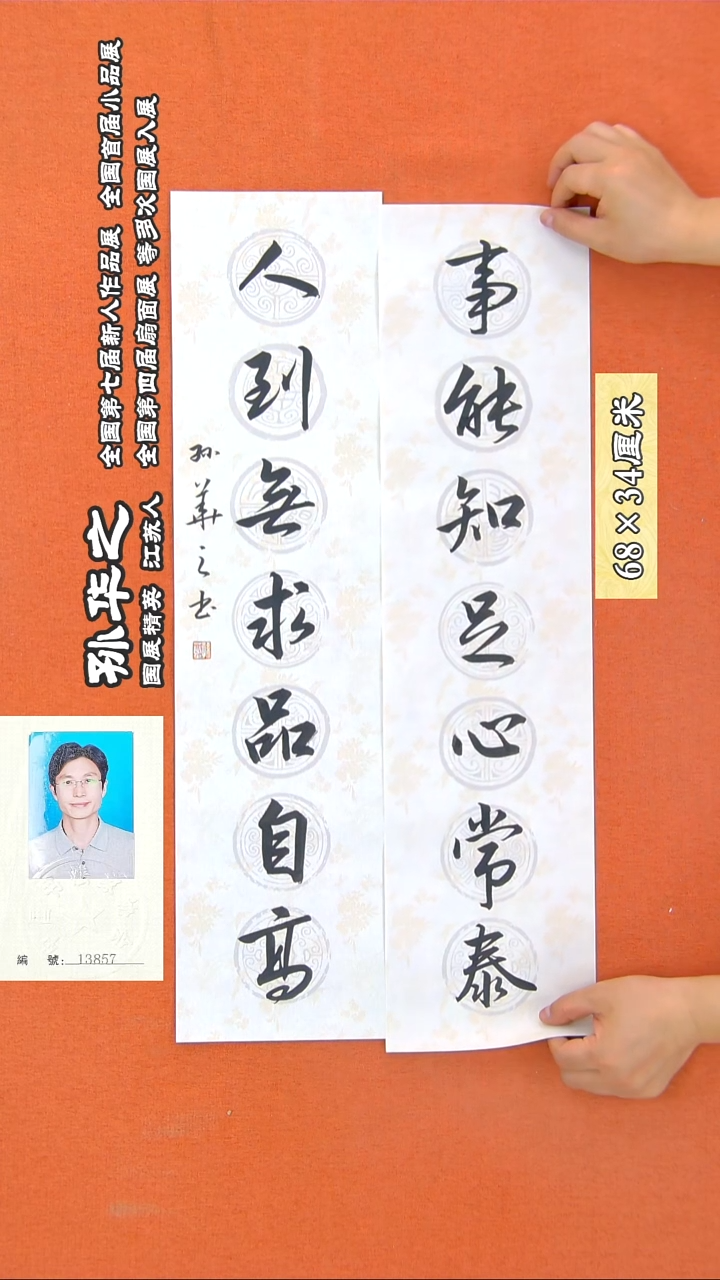 事能知足心常泰
人到無求品自高
孙華之书
孙华之
国展精英 江苏人
全国第七届新人作品展 全国首届小品展
全国第四届扇面展 等多次国展入展
68×34厘米
編 號: 13857